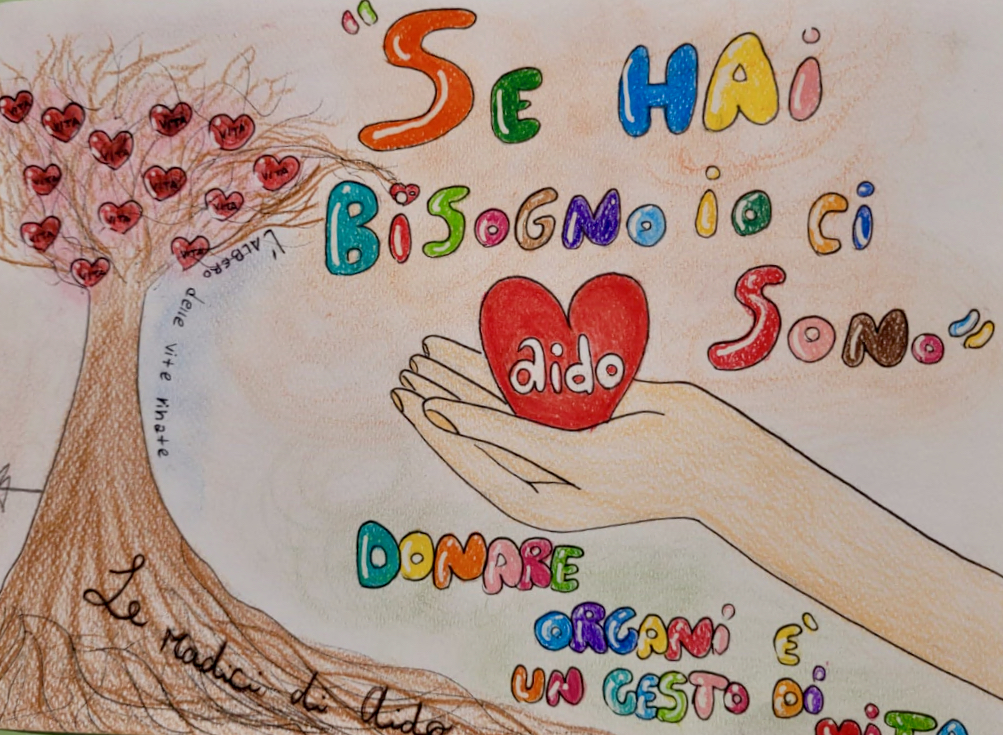 "Se HAi
BiSOGNO io Ci
SONO"
aido
DONARE
ORGANi E'
UN GESTO Di
ViTA
VITA
VITA
VITA
VITA
VITA
VITA
VITA
VITA
VITA
VITA
VITA
VITA
VITA
L'ALBERO delle vite Rinate
Le radici di Aido